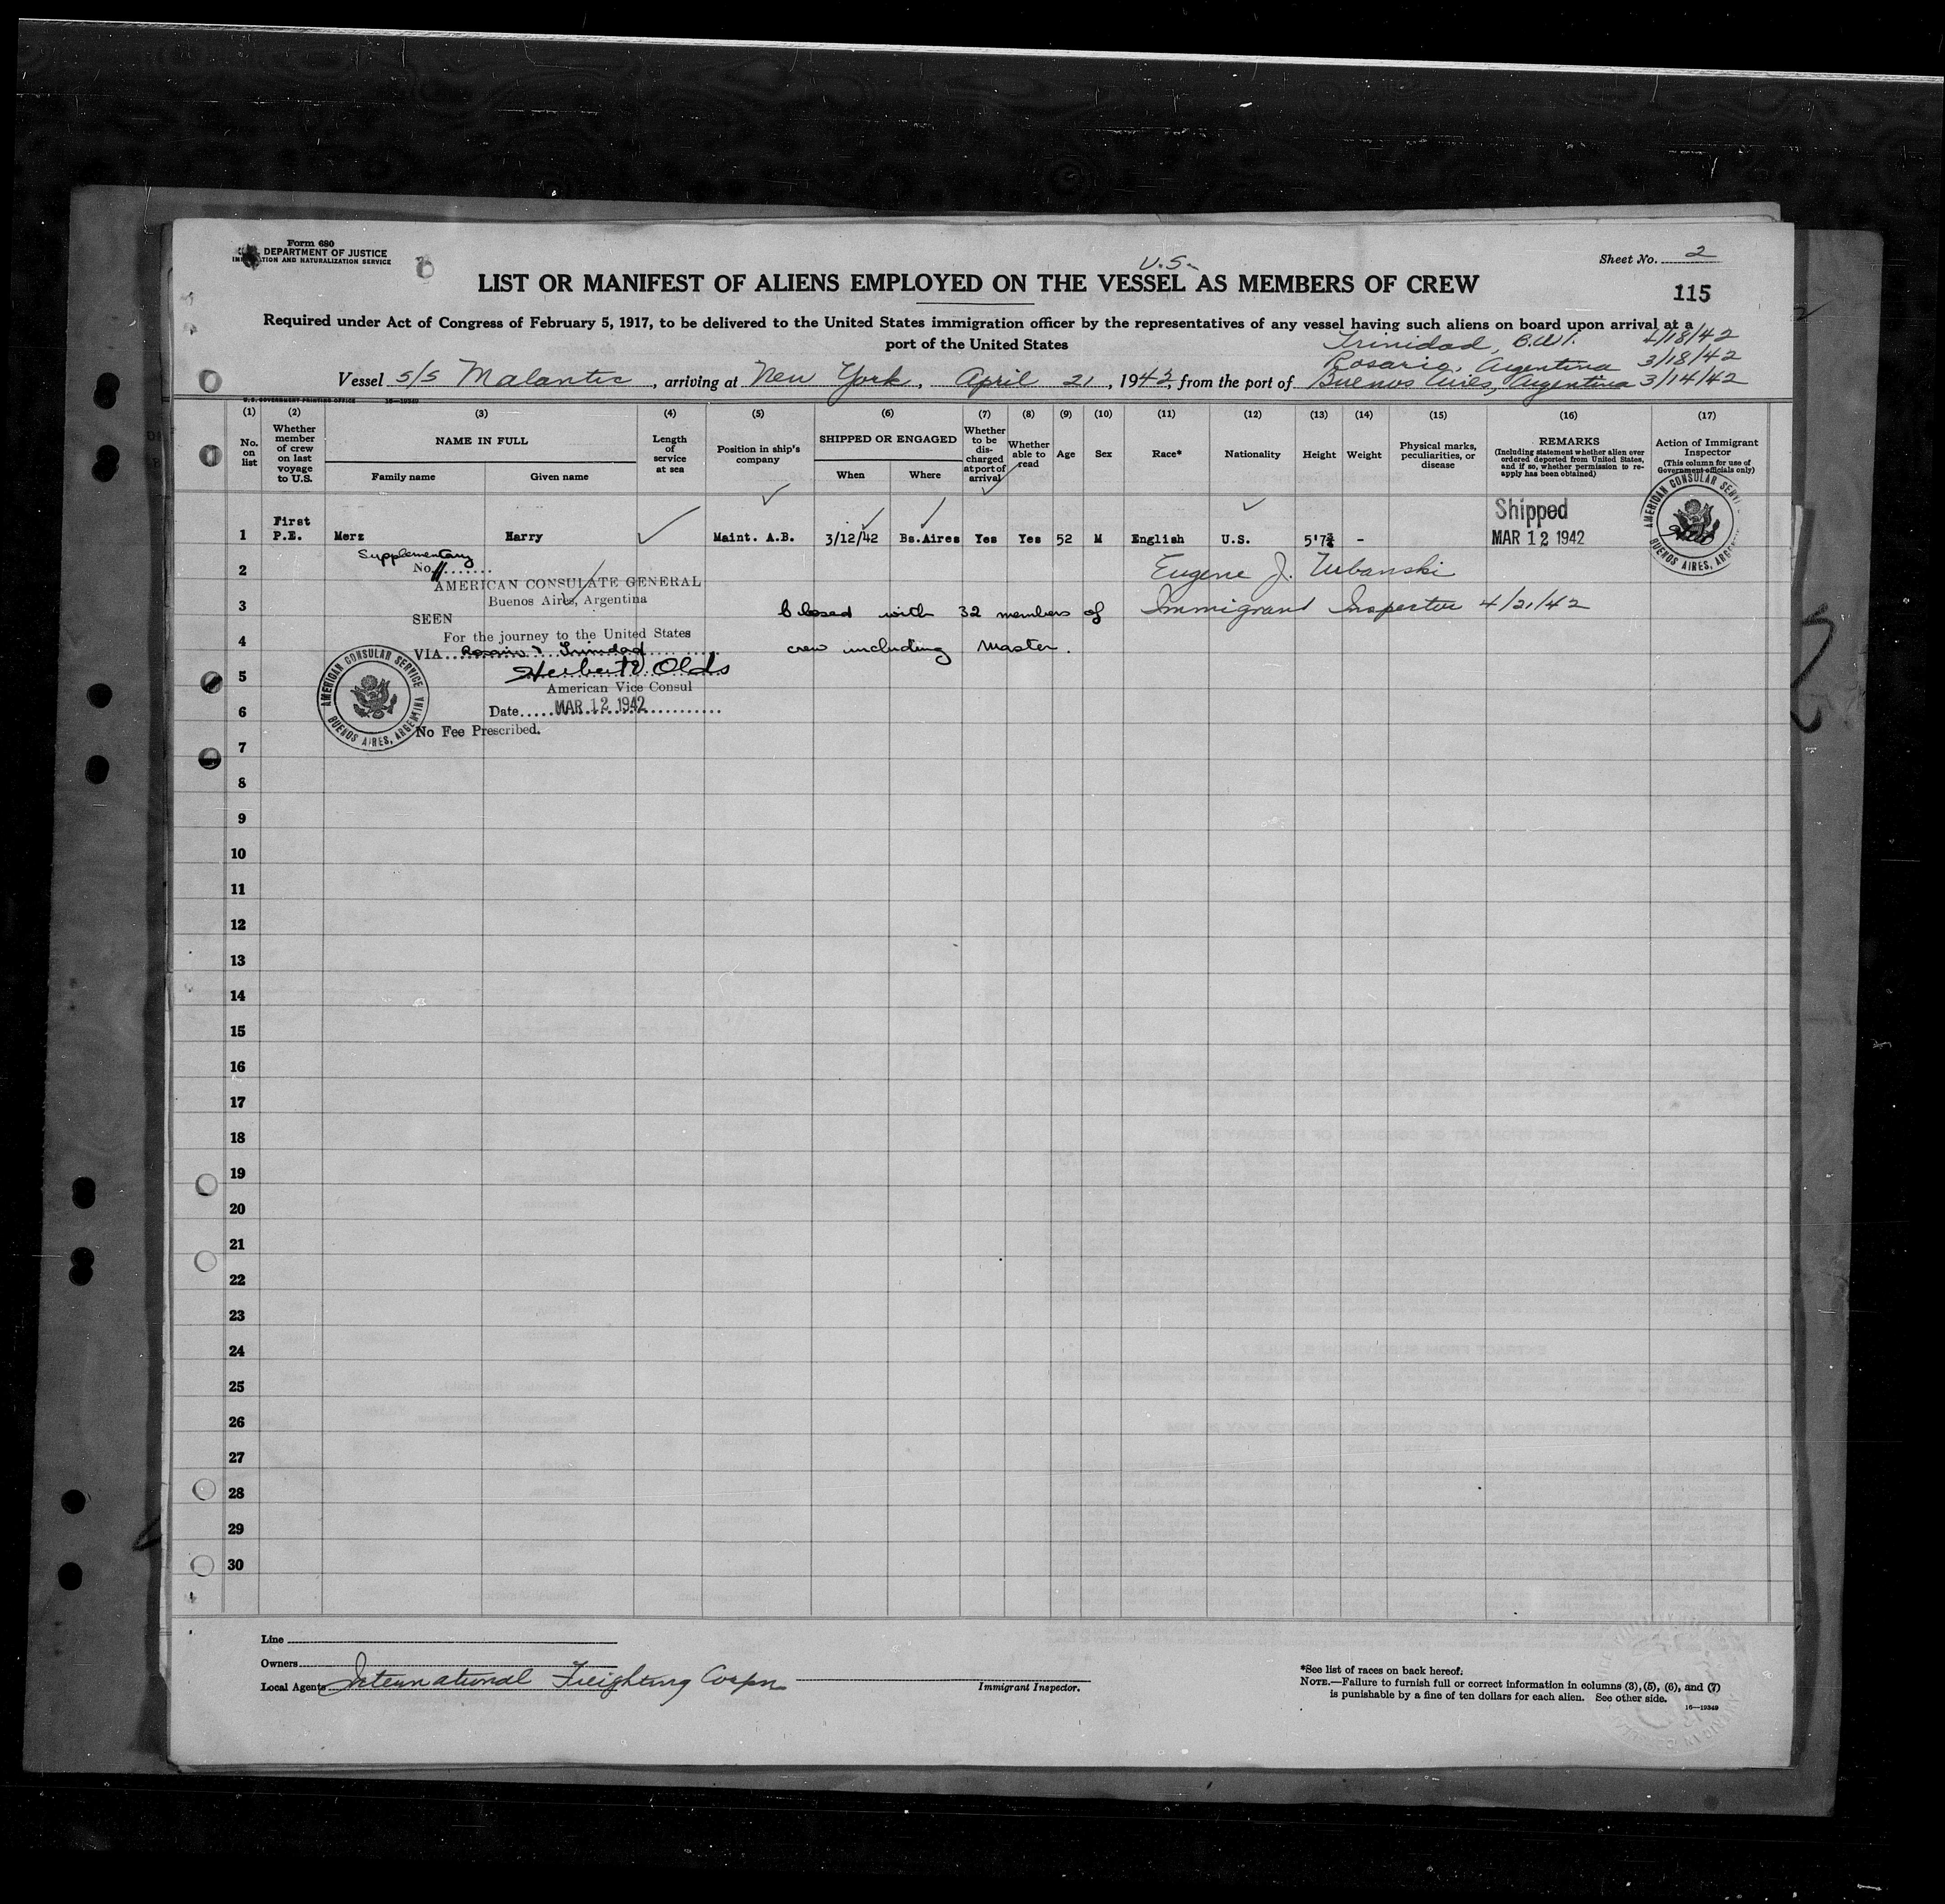 Form 630
DEPARTMENT OF JUSTICE
IMMIGRATION AND NATURALIZATION SERVICE
Sheet No. 2
115
U.S.
LIST OR MANIFEST OF ALIENS EMPLOYED ON THE VESSEL AS MEMBERS OF CREW
Required under Act of Congress of February 5, 1917, to be delivered to the United States immigration officer by the representatives of any vessel having such aliens on board upon arrival at a
port of the United States
Trinidad, B.W.I. 4/18/42
Rosario, Argentina 3/18/42
Vessel S/S Malantic, arriving at New York, April 21, 1942, from the port of Buenos Aires, Argentina 3/14/42
U.S. GOVERNMENT PRINTING OFFICE 16—19349
(1) (2) (3) (4) (5) (6) (7) (8) (9) (10) (11) (12) (13) (14) (15) (16) (17)
No. on list
Whether member of crew on last voyage to U.S.
NAME IN FULL
Family name
Given name
Length of service at sea
Position in ship's company
SHIPPED OR ENGAGED
When
Where
Whether to be discharged at port of arrival
Whether able to read
Age
Sex
Race*
Nationality
Height
Weight
Physical marks, peculiarities, or disease
REMARKS
(Including statement whether alien ever ordered deported from United States, and if so, whether permission to reapply has been obtained)
Action of Immigrant Inspector
(This column for use of Government officials only)
1 First P.E. Merz Harry Maint. A.B. 3/12/42 Bs.Aires Yes Yes 52 M English U.S. 5'7½ -
Shipped
MAR 12 1942
AMERICAN CONSULAR SERVICE
BUENOS AIRES, ARGENTINA
Supplementary
No. 11
AMERICAN CONSULATE GENERAL
Buenos Aires, Argentina
SEEN
For the journey to the United States
VIA Rosario & Trinidad
Herbert V. Olds
American Vice Consul
Date MAR 12 1942
No Fee Prescribed.
AMERICAN CONSULAR SERVICE
BUENOS AIRES, ARGENTINA
Closed with 32 members of
crew including Master.
Eugene J. Urbanski
Immigrant Inspector 4/21/42
2
3
4
5
6
7
8
9
10
11
12
13
14
15
16
17
18
19
20
21
22
23
24
25
26
27
28
29
30
Line
Owners
Local Agents International Freighting Corpn
Immigrant Inspector.
*See list of races on back hereof.
NOTE.—Failure to furnish full or correct information in columns (3), (5), (6), and (7)
is punishable by a fine of ten dollars for each alien. See other side.
16—19349